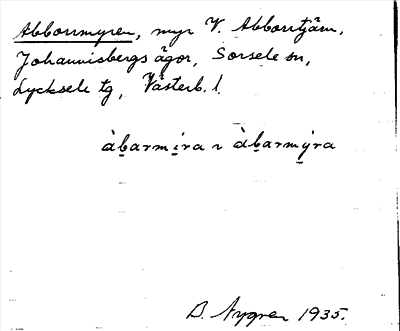 Abborrmyren, myr V. Abborrtjärn,
Johannisbergs ägor, Sorsele sn,
Lycksele tg, Västerb. l.
àb̲armi̲ra ~ àb̲armỳ̲ra
B. Nygren 1935.